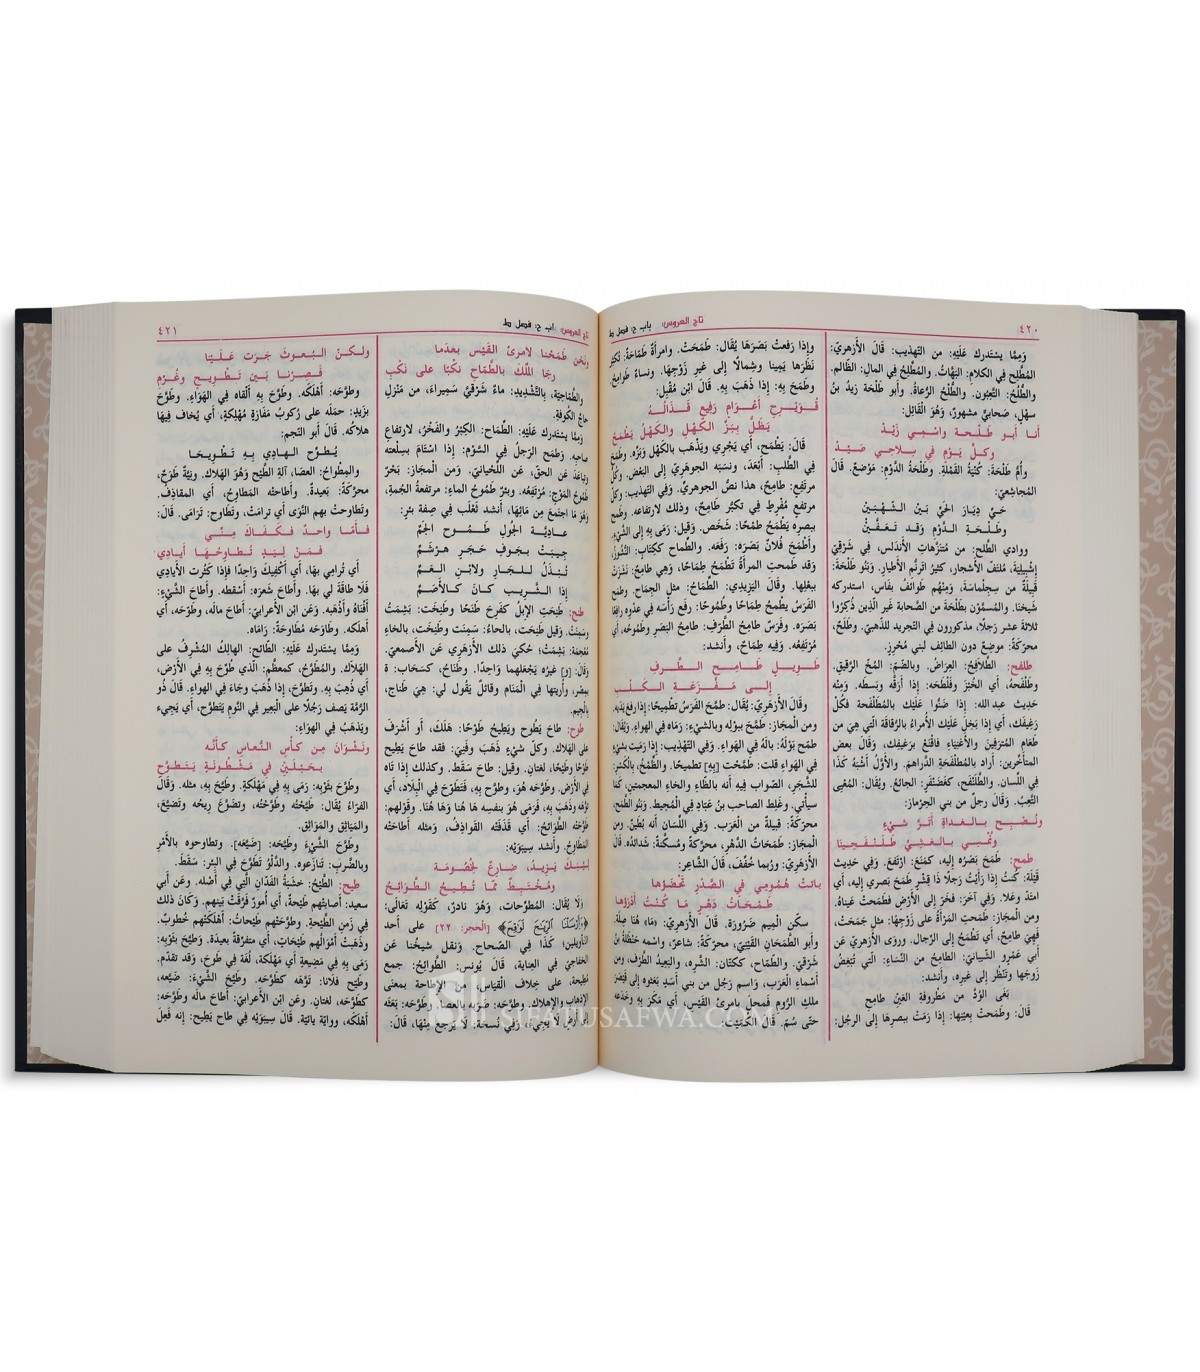 ٤٢٠
تاج العروس: باب ح: فصل ط
ومِمَّا يستَدرك عَلَيْهِ: من التّهذيب: قَالَ الأَزهريّ:
المُطْلِح في الكلام: البَهَّاتُ. والمُطْلِحُ في المال: الظّالم.
والطُّلُحُ: التَّعِبُون. والطُّلُحُ الرُّعاةُ. وأَبو طَلْحَة زَيدُ بنُ
سهْلٍ، صَحابيٌّ مشهورٌ، وَهُوَ القَائِل:
أَنا أَبو طَلْحة واسْمي زَيْدُ
وكلَّ يَوْمٍ في سِلاحي صَيْدُ
وأُمّ طَلْحَةَ: كُنْيَةُ القَمْلَة. وطَلْحَةُ الدَّوْمِ: مَوْضِعٌ. قَالَ
المُجاشِعيّ:
حَيِّ دِيَارَ الحَيِّ بَين الشَّهْبَيْنْ
وطَلْحَةِ الدَّوْمِ وَقد تَعَفَّيْنْ
ووادي الطَّلْح: من مُتَنزَّهاتِ الأَندلس، في شَرْقيّ
إِشْبِيلِيَة، مُلتفّ الأَشجار، كثيرُ تَرنُّمِ الأَطيار. وبَنُو طَلْحَةَ:
قَبِيلَةٌ من سِجِلْمَاسَةَ، ومِنْهُم طَوائفُ بفاس، استدركه
شَيخُنا. والمُسمَّوْن بطَلْحَةَ من الصَّحابة غير الّذين ذُكِرُوا
ثلاثةَ عشر رَجُلًا، مذكورون في التَّجريد للذَّهبيّ. وطَلَحٌ،
محرّكةً: موضعٌ دون الطَّائف لبني مُحْرِزٍ.
طلفح: الطَّلافِحُ: العِراضُ. وبالضّمّ: المخُّ الرَّقيق.
وطَلْفَحَه، أَي الخُبْزَ وفَلْطَحَهُ: إِذا أَرَقَّه وبَسَطَه. ومِنْه
حَدِيث عبد الله: إِذا ضَنُّوا عَلَيْك بالمُطَلْفَحة فَكُلْ
رَغِيفَك، أَي إِذا بَخِلَ عَلَيْك الأُمراءُ بالرُّقاقَة الّتي هِيَ من
طَعَام المُتْرَفِينَ والأَغنياءِ فاقْنَعْ برَغِيفك. وقَالَ بعض
المتأَخّرين: أَراد بالمُطَلْفَحَة الدَّراهِمَ. والأَوَّلُ أَشْبَهُ كَذَا
في اللّسان. والطَّلَنْفَح، كغَضَنْفَرٍ: الجَائِعُ. ويُقَال: المُعْيِي
التَّعِبُ. وَقَالَ رجلٌ من بني الحِرْمَازِ:
ونُصْبِح بالغَداةِ أَتَرَّ شيْءٍ
ونُمْسي بالعَشِيِّ طَلَنْفَحِينَا
طمح: طَمَحَ بَصَرُه إِليه، كمَنَعَ: ارْتَفَعَ. وفي حَدِيث
قَيْلَةَ: كُنْتُ إِذا رَأَيْتُ رَجُلًا ذَا قِشْرٍ طَمَحَ بَصَري إِليه، أَي
امتَدّ وعَلا. وفِي آخرَ: فخَرَّ إِلى الأَرْض فَطَمحَتْ عَيناهُ.
ومن المَجَاز: طَمَحَتِ المَرْأَةُ على زَوْجِهَا: مثل جَمَحَتْ،
فَهِيَ طامِحٌ، أَي تَطْمَحُ إِلى الرِّجال. ورَوى الأَزهريّ عَن
أَبي عَمْرٍو الشَّيبانيّ: الطَّامِحُ من النِّسَاءِ: الَّتي تُبْغِضُ
زَوجَها وتَنْظُر إِلى غَيرِه، وأَنشد:
بَغَى الوُدَّ من مَطْروفةِ العَيْنِ طامحِ
قَالَ: وطَمَحَتْ بعينِها: إِذا رَمَتْ ببصرِها إِلى الرجُل:
وإِذا رَفعتْ بَصَرَهَا يُقَال: طَمَحَتْ. وامرأَةٌ طَمّاحَةٌ: تُكْثِر
نَظَرَها يَمِينا وشِمالًا إِلى غيرِ زَوْجِها. ونساءٌ طَوامِحُ.
وطَمَحَ بِهِ: إِذا ذَهَبَ بِهِ. قَالَ ابْن مُقْبِل:
قُوَيْرِحُ أَعْوَامٍ رَفِيعٌ قَذَالُهُ
يَظَلّ بِبَزِّ الكَهْلِ والكَهْلُ يَطْمَحُ
قَالَ: يَطْمَح، أَي يَجْري ويَذْهَب بالكَهْل وَبَزِّه. وطَمَحَ
في الطَّلبِ: أَبْعَدَ، ونسَبَه الجوهريّ إِلى البَعْض. وكُلُّ
مرتَفِعٍ: طامِحٌ، هذا نصُّ الجوهريّ. وفي التّهذيب: وكلُّ
مرتفعٍ مُفْرِطٍ في تكبّرٍ طَامِحٌ، وذلك لارتفاعه. وطَمَحَ
ببصرِه يَطْمَحُ طَمْحًا: شَخَص. وقيل: رَمَى بِهِ إِلى الشَّيْءِ.
وأَطْمَحَ فُلانٌ بَصَرَه: رَفَعَه. والطِّماح ككِتَابٍ: النُّشُوزُ.
وَقد طَمَحتِ المَرأَةُ تَطْمَحُ طِمَاحًا، وَهِي طامِحٌ: نَشَزَتْ
ببعْلِها. وقَالَ اليَزِيديّ: الطِّمَاحُ: مثل الجِماح. وطَمَحَ
الفَرَسُ يَطْمَحُ طِمَاحًا وطُمُوحًا: رَفع رَأْسَه في عَدْوِه رَافِعًا
بَصَرَه. وفَرَسٌ طامِحُ الطَّرْفِ: طامِحُ البَصَرِ وطَمُوحُه، أَي
مُرْتَفِعُه. وَفِيه طِمَاحٌ، وأَنشد:
طَوِيلٌ طَامِحُ الطَّرْفِ
إِلى مَفْزَعَةِ الكَلْبِ
وقَالَ الأَزْهَرِيّ: يُقَال: طَمَّحَ الفَرَسُ تطمِيحًا: إِذا رفع يَدَيْه.
وَمن المَجاز: طَمَّحَ بِبَوْلِه وبالشّيْءِ: رَمَاه في الهواءِ. ويُقَال:
طَمّح بَوْلَهُ: بالَهُ في الهَوَاء. وَفِي التّهْذِيب: إِذا رَمَيْتَ بشَيْءٍ
في الهَواءِ قلت: طَمَّحْت [بِهِ] تطميحًا. والطِّمْحُ، بالكَسْرِ:
للشَّجَر، الصَّواب فِيه أَنه بالظّاءِ والخَاءِ المعجمتين، كما
سيأْتي، وغَلِط الصاحب بنُ عَبّادٍ في المُحيط. وبَنُو الطَّمَحِ،
محرّكةً: قبيلةٌ من العَرَب. وفِي اللِّسان أَنّه بُطَيْنٌ. ومن
المَجَاز: طَمَحَاتُ الدَّهْرِ، محرّكةً ومُسكَّنةً: شَدائدُه. قَالَ
الأَزهريّ: وربما خُفِّفَ، قَالَ الشَّاعر:
باتتْ هُمُومِي في الصَّدْرِ تَحْضَؤُها
طَمْحَاتُ دَهْرٍ مَا كُنتُ أَدْرَؤُها
سكَّن الْمِيم ضَرُورَة. قَالَ الأَزهَرِيّ: «مَا» هُنَا صِلَةٌ.
وأَبو الطَّمَحَان القَيْنيّ، محرّكةً: شاعرٌ، واسْمه حَنْظَلةُ بنُ
شَرْقيّ. والطَّمّاح، ككَتّان: الشَّرِه، والبَعيدُ الطَّرَفِ، ومن
أَسْمَاءِ العَرَب، وَاسم رَجُلٍ من بني أَسَدٍ بَعَثوه إِلى قَيْصَرَ
مَلِكِ الرّوم فمَحَلَ بامرئِ القَيْسِ، أَي مَكَرَ بِهِ وخَدَعَه
حتّى سُمّ. قَالَ الكُمَيْت:
تاج العروس: باب ح: فصل ط
٤٢١
ونحْن طَمَحْنا لامرئِ القَيْس بعدَما
رجَا المُلْكَ بالطَّمّاح نَكْبًا على نَكْبِ
والطَّمّاحيّة، بالتَّشْدِيد: ماءٌ شَرْقيَّ سَمِيراءَ، مِن مَنْزِلِ
حاجّ الكُوفَةِ.
ومِمَّا يستَدرك عَلَيْهِ: الطّمَاح: الكِبْرُ والفَخْرُ، لارتفاعِ
صاحبِه. وطَمَح الرّجلُ في السَّوْم: إِذا اسْتَامَ بسِلْعته
وتَبَاعَدَ عَن الحَقّ، عَن اللِّحْيانيّ. وَمن المَجاز: بَحْرٌ
طَمُوحُ المَوْجِ: مُرْتَفِعُه. وبئرٌ طَمُوحُ الماءِ: مرتفعةُ الجُمّةِ،
وهُوَ مَا اجتَمع مِن مَائِهَا، أَنشد ثَعْلَب في صِفة بئرٍ:
عاديَّة الجُولِ طَمُوح الجَمِّ
جِيبَتْ بجَوفِ حَجَرٍ هِرْشَمِّ
تُبْذَلُ للجارِ ولابْنِ العَمِّ
إِذا الشَّرِيب كَانَ كالأَصَمِّ
طنح: طَنِحَتِ الإِبلُ كفَرِحَ طَنَحًا وطَنِخَت: بَشِمَتْ
وسمِنَتْ. وَقيل طَنِحَت، بالحاءِ: سَمِنَت، وطَنِخَت، بالخاءِ
مُعْجَمةً: بَشِمَتْ؛ حُكِيَ ذلك الأَزْهَرِي عَن الأَصمعيّ.
وَقَالَ: [و] غَيْره يَجْعَلهما وَاحِدًا. وطَنَاحُ، كسَحَاب: ة
بمِصْر، وأُرِيتها في المَنَام وقائلٌ يَقُول لي: هِيَ طَناج،
بالْجيم.
طوح: طاحَ يَطُوح ويَطِيح طَوْحًا: هَلَكَ، أَو أَشْرَفَ
على الهلاك. وكلّ شيْءٍ ذَهَبَ وفَنِيَ: فقد طاح يَطِيح
طَوْحًا وطَيْحًا، لغتان. وقيل: طاحَ: سَقَط. وكذلك إِذا تَاه
في الأَرْض. وطَوَّحَه هُوَ، وطَوَّحَ بِهِ، فَتَطَوَّحَ في البِلاَد، أَي
تَوَّهَه وذَهَب بِهِ، فَرَمَى هُوَ بنفسِه هَا هُنا وَهَا هُنا. وقَولُهم:
طَوَّحَتْه الطَّوائِحُ: أَي قَذَفَتْه القَواذِفُ، ومثله أَطَاحَتْه
المَطَاوحُ. وأَنشد سِيبَوَيْهِ:
ليُبْكَ يَزيدُ، ضَارِعٌ لخُصُومةٍ
ومُخْتَبِطٌ مِمّا تُطِيحُ الطَّوَائِحُ
وَلَا يُقَال: المُطَوِّحات، وَهُوَ نادرٌ، كَقَوْلِه تَعَالَى:
﴿وَأَرْسَلْنَا الرِّيَاحَ لَوَاقِحَ﴾ [الحجر: ٢٢] على أَحد
التَّأْوِيلين؛ كَذَا في الصّحاح. ونقل شيخُنا عَن
الخفاجيّ في العِناية، قَالَ يُونُس: الطَّوائح: جمع
مُطيحة، على خِلاف القِياس الإِطاحة بمعنى
الإِذهاب والإِهلاك. وطَوَّحَه: ضَرَبَه بالعصا. وطَوَّحَه: بَعَثَه
إِلى أَرْضٍ لَا يَجِيءُ، وَفِي نُسْخَة: لَا يَرْجِع مِنْهَا، قَالَ:
ولكنّ البُعوثَ جَرَتْ عَلَيْنا
فَصِرْنا بَين تَطْويحٍ وغُرْمِ
وطَوَّحَه: أَهْلكَه. وطَوَّحَ بِهِ أَلْقاه في الهَوَاءِ. وطَوَّحَ
بزيدٍ: حَمَله على رُكوبِ مَفَازَةٍ مُهْلِكةٍ، أَي يُخاف فِيهَا
هلاكُه. قَالَ أَبو النّجم:
يُطَوِّحُ الهادِي بِه تَطْوِيحَا
والمِطْواحُ: العصا، آلَةُ الطَّيْح وَهُوَ الهَلاك. ونِيَّةٌ طَوَحٌ،
محرَّكةً: بَعيدةٌ. وأَطاحَتْه المَطاوِحُ، أَي المَقاذِفُ.
وتَطاوحتْ بهم النَّوَى أَي تَرامَتْ، وتَطاوح: تَرَامَى. قَالَ:
فأَمّا واحدٌ فكَفَاكَ مِنِّي
فَمَنْ لِيَدٍ تُطاوِحُها أَيادِي
أَي تُرامِي بهَا، أَي أَكْفِيكَ وَاحِدًا فإِذا كَثُرت الأَيادي
فَلَا طاقَةَ لي بهَا. وأَطاحَ شَعَرَه: أَسْقَطه. وأَطاحَ الشَّيْءَ:
أَفْنَاهُ وأَذْهَبَه. وَعَن ابْن الأَعرابيّ: أَطاحَ مالَه وطَوَّحَه، أَي
أَهلكه. وطَاوَحَه مُطَاوَحَةً: رَامَاه.
ومِمَّا يستَدرك عَلَيْهِ: الطّائح: الهالكُ المُشْرِفُ على
الهَلاكِ. والمُطَوَّحُ، كمعظّم: الَّذي طُوِّحَ بِهِ في الأَرْض،
أَي ذُهِبَ بِهِ. وتَطَوَّحَ، إِذا ذَهَبَ وَجَاءَ في الهواءِ. قَالَ ذُو
الرُّمّة يَصف رَجُلًا على الْبَعِير في النَّوم يَتَطَوَّح، أَي يَجِيءُ
ويَذهَب في الهَوَاءِ:
ونَشْوَانَ مِن كأْسِ النُّعاسِ كأَنّه
بِحَبْلَيْنِ في مَشْطونَةٍ يَتَطَوَّحُ
وطَوَّحَ بثَوْبه: رَمَى بِه في مَهْلِكَة. وطَيَّحَ بِهِ، مثله. وَقَالَ
الفَرَّاءُ يُقَال: طَيَّحْته وطَوَّحْته، وتَضَوَّعَ ريحُه وتَضَيَّعَ،
والمَيَاثِق والمَوَاثِق.
وطَوَّحَ الشَّيْءَ وطَيَّحه: [ضَيَّعَه]. وتطاوحوه بالأَمْرِ
وبالضَّرْب: تَنازَعوه. والدَّلْوُ تَطَوَّحُ في البِئر: سَقَطَ.
طيح: الطَّيْحُ: خَشبةُ الفَدّانِ الَّتي في أَصله. وَعَن أَبي
سعيد: أَصابَتْهم طَيْحَةٌ، أَي أُمورٌ فَرَّقت بَينهم. وَكَانَ ذلك
في زَمَنِ الطَّيْحَةِ. وطَوَّحَتْهم طَيْحَاتٌ: أَهْلَكَتْهم خُطوبٌ.
وذَهَبتْ أَموالُهم طَيْحَاتٍ، أَي متفرّقةً بعيدةً. وطَيَّح بثَوْبِه:
رَمَى بِهِ في مَضِيعَةٍ أَي مَهْلَكة، لُغَة في طَوح، وَقد تقدّم.
وطَيَّح فُلانًا: تَوَّهَه كَطَوَّحَه. وَطَيَّحَ الشَّيْءَ: ضَيَّعَه،
كطَوَّحَه، لغتان. وَعَن ابْن الأَعرابيّ: أَطَاحَ مالَه وطَوَّحَه:
أَهْلَكه، وواويّة يائية. قَالَ سِيبَوَيْهٍ في طاح يَطِيح: إِنه فَعِلَ
SIFATUSAFWA.COM